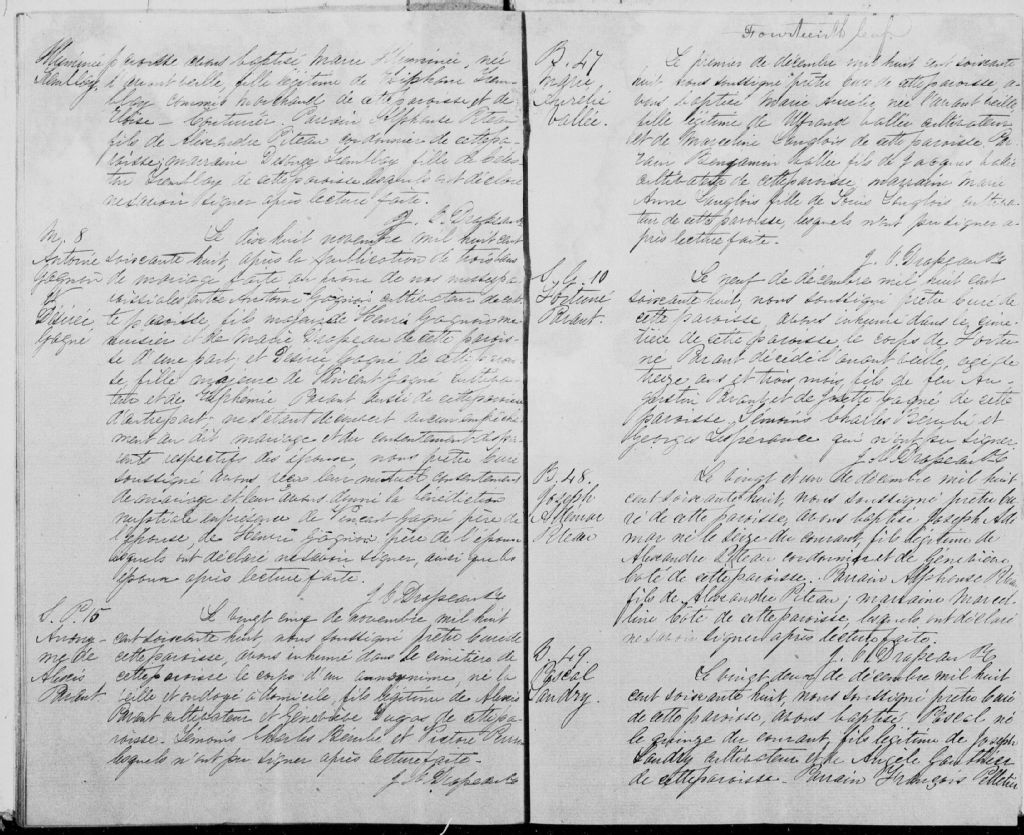 Herminie
Tremblay
paroisse avons baptisé Marie Herminie, née
la veille, fille légitime de Tremblay
commis marchand de cette paroisse et de
Couturier. Parrain Alphonse Piteau
fils de Alexandre Piteau cordonnier de cette pa-
roisse; marraine Tremblay fille de
Tremblay de cette paroisse lesquels ont déclaré
ne savoir signer après lecture faite.
J. O. Drapeau Ptre
M. 8
Antoine
Gagnon
&
Désirée
Gagné
Le dix huit novembre mil huit cent
soixante huit, après la publication de trois bans
de mariage faite au prône de nos messes pa-
roissiales entre Antoine Gagnon cultivateur de cet-
te paroisse, fils majeur de Henri Gagnon me-
nuisier et de Marie Drapeau de cette parois-
se d'une part et Désirée Gagné de cette parois-
se, fille majeure de Vincent Gagné cultiva-
teur et de Euphemie Parant aussi de cette paroisse
d'autre part ne s'étant découvert aucun empêche-
ment au dit mariage et du consentement des pa-
rents respectifs des époux, nous prêtre curé
soussigné avons reçu leur mutuel consentement
de mariage et leur avons donné la bénédiction
nuptiale en présence de Vincent Gagné père de
l'épouse, de Henri Gagnon père de l'époux
lesquels ont déclaré ne savoir signer, ainsi que les
époux après lecture faite.
J. O. Drapeau Ptre
S. P. 15
Anony-
me de
Alexis
Parant.
Le vingt cinq de novembre mil huit
cent soixante huit, nous soussigné prêtre curé de
cette paroisse, avons inhumé dans le cimetière de
cette paroisse le corps d'un anonyme, né la
veille et ondoyé à domicile, fils légitime de Alexis
Parant cultivateur et Geneviève Dugas de cette pa-
roisse. Témoins Charles Berubé et
lesquels n'ont pu signer après lecture faite.
J. O. Drapeau Ptre
Fourteenth leaf
B. 47
Marie
Aurelie
Vallée.
Le premier de décembre mil huit cent soixante
huit, nous soussigné prêtre curé de cette paroisse, a-
vons baptisé Marie Aurelie, née l'avant veille
fille légitime de Vallée cultivateur
et de Marceline Langlois de cette paroisse. Par-
rain Benjamin Vallée fils de Jacques Vallée
cultivateur de cette paroisse; marraine Marie
Anne Langlois fille de Louis Langlois cultiva-
teur de cette paroisse, lesquels n'ont pu signer a-
près lecture faite.
J. O. Drapeau Ptre
S. G. 10
Fortuné
Parant.
Le neuf de décembre mil huit cent
soixante huit, nous soussigné prêtre curé de
cette paroisse, avons inhumé dans le cime-
tière de cette paroisse, le corps de Fortu-
né Parant décédé l'avant veille, agé de
treize ans et trois mois, fils de feu Au-
gustin Parant et de Josette Gagné de cette
paroisse. Témoins Charles Berubé et
Georges Lesperance qui n'ont pu signer
J. O. Drapeau Ptre
B. 48.
Joseph
Ademar
Piteau
Le vingt et un de décembre mil huit
cent soixante huit, nous soussigné prêtre cu-
ré de cette paroisse, avons baptisé Joseph Ade-
mar né le seize du courant, fils légitime de
Alexandre Piteau cordonnier et de Geneviève
Coté de cette paroisse. Parrain Alphonse Piteau
fils de Alexandre Piteau; marraine Marcel-
line Coté de cette paroisse, lesquels ont déclaré
ne savoir signer après lecture faite.
J. O. Drapeau Ptre
B. 49
Pascal
Landry.
Le vingt deux de décembre mil huit
cent soixante huit, nous soussigné prêtre curé
de cette paroisse, avons baptisé Pascal né
le quinze du courant, fils légitime de Joseph
Landry cultivateur et de Angèle Gauthier
de cette paroisse. Parrain François Pelletier